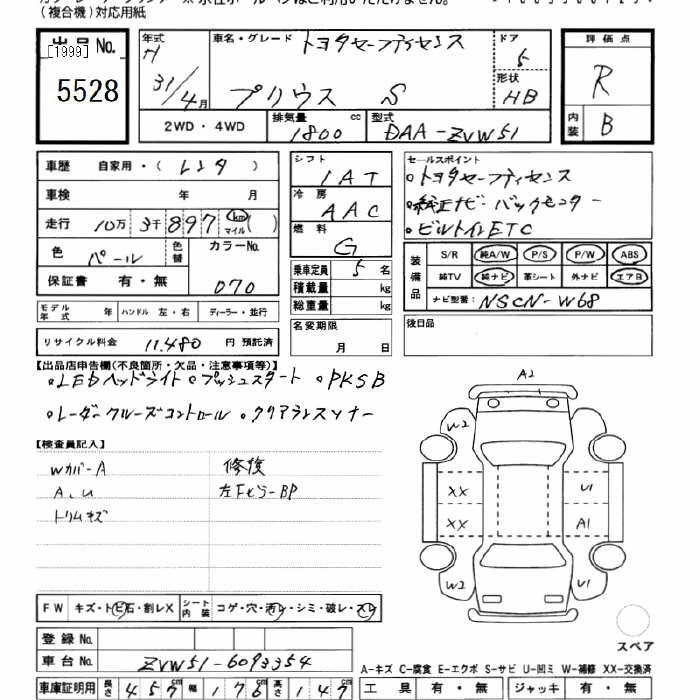 (複合機)対応用紙
出品No.
[1999]
5528
年式 H 31/4月
車名・グレード トヨタセーフティセンス
プリウス S
ドア 5
形状 HB
評価点 R
内装 B
2WD・4WD
排気量 1800 cc
型式 DAA-ZVW51
車歴 自家用・(レンタ)
車検 年 月
走行 10万3千897 km マイル( )
色 パール 色替
カラーNo. 070
保証書 有・無
モデル年式 年 ハンドル 左・右 ディーラー・並行
リサイクル料金 11,480 円 預託済
シフト IAT
冷房 AAC
燃料 G
乗車定員 5名
積載量 kg
総重量 kg
名変期限
月 日
セールスポイント
・トヨタセーフティセンス
・純正ナビ・バックモニター
・ビルトインETC
装備品
S/R 純A/W P/S P/W ABS
純TV 純ナビ 革シート 外ナビ エアB
ナビ型番: NSCN-W68
後日品
【出品店申告欄(不良箇所・欠品・注意事項等)】
・LEDヘッドライト・プッシュスタート ・PKSB
・レーダークルーズコントロール・クリアランスソナー
【検査員記入】
Wカバー A
A、U
トリムキズ
修復
左Fピラー BP
A2
W2
XX
XX
W2
U1
A1
U1
スペア
FW キズ・トビ石・割レX シート内装 コゲ・穴・汚レ・シミ・破レ・スレ
登録No.
車台No. ZVW51-6093354
車庫証明用 長さ 457cm 幅 176cm 高さ 147cm
A-キズ C-腐食 E-エクボ S-サビ U-凹ミ W-補修 XX-交換済
工具 有・無 ジャッキ 有・無